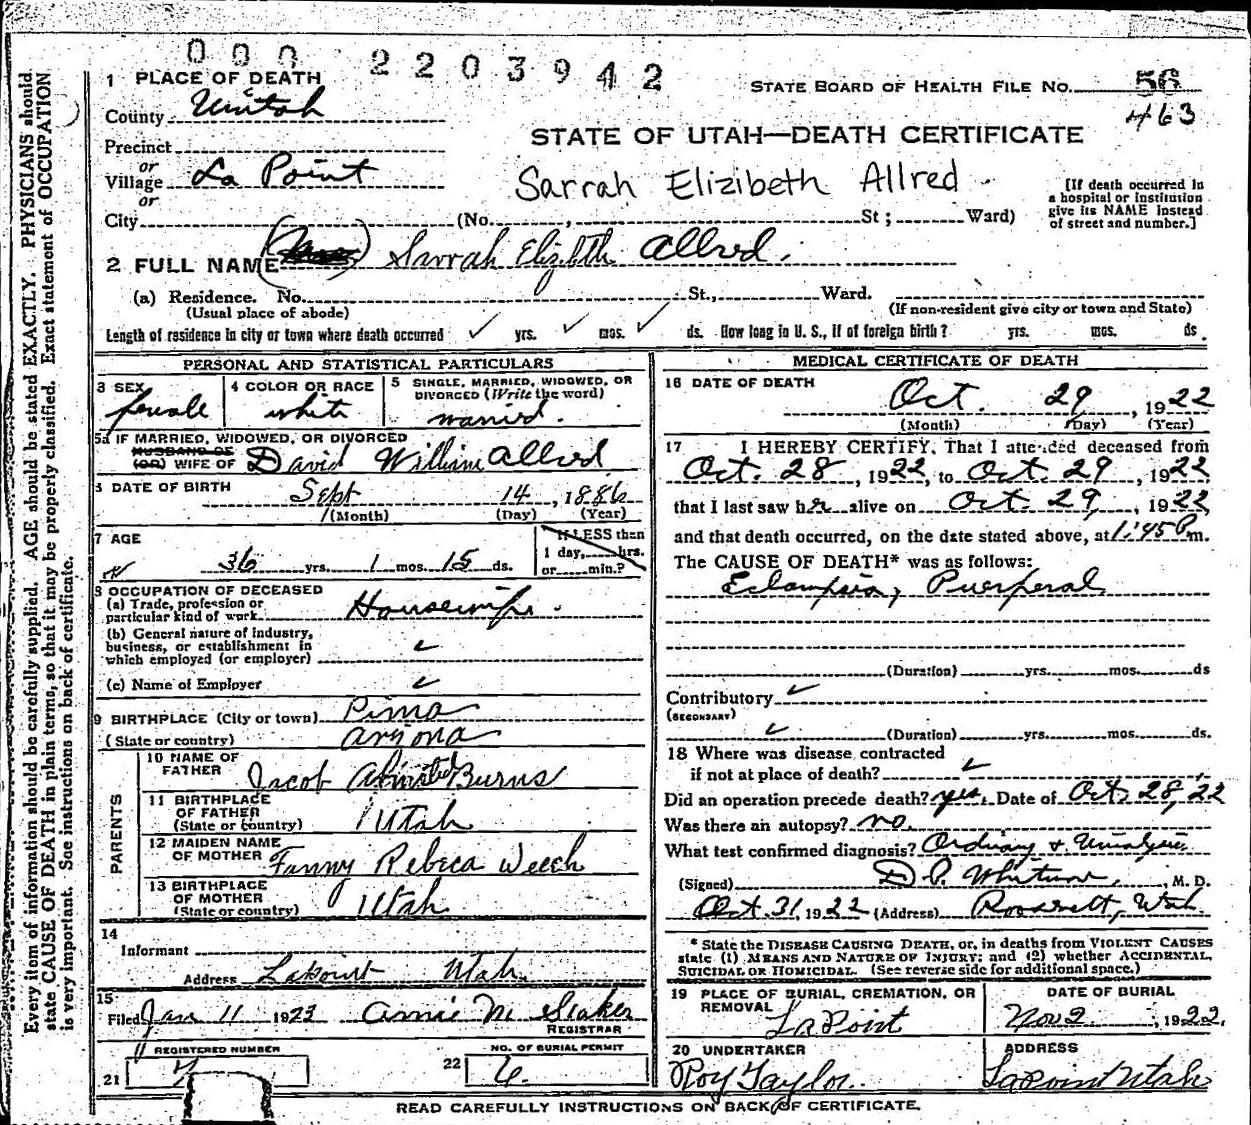 000 2203942
1 PLACE OF DEATH
STATE BOARD OF HEALTH FILE NO. 56
County Uintah
463
STATE OF UTAH—DEATH CERTIFICATE
Precinct
or
Village La Point
Sarrah Elizibeth Allred.
[If death occurred in a hospital or institution give its NAME instead of street and number.]
or
City (No. , St; Ward)
2 FULL NAME Sarrah Elizibeth Allred.
(a) Residence. No. St., Ward.
(Usual place of abode) (If non-resident give city or town and State)
Length of residence in city or town where death occurred ✓ yrs. ✓ mos. ✓ ds. How long in U. S., if of foreign birth? yrs. mos. ds.
PERSONAL AND STATISTICAL PARTICULARS
3 SEX female
4 COLOR OR RACE white
5 SINGLE, MARRIED, WIDOWED, OR DIVORCED (Write the word) married.
5a IF MARRIED, WIDOWED, OR DIVORCED
HUSBAND OF
(OR) WIFE OF David William Allred
DATE OF BIRTH Sept 14, 1886
(Month) (Day) (Year)
7 AGE 36 yrs. 1 mos. 15 ds.
If LESS than 1 day, hrs. or min.?
8 OCCUPATION OF DECEASED
(a) Trade, profession or particular kind of work Housewife.
(b) General nature of industry, business, or establishment in which employed (or employer) ✓
(c) Name of Employer ✓
9 BIRTHPLACE (City or town) Pima
(State or country) Arizona
PARENTS
10 NAME OF FATHER Jacob Burns
11 BIRTHPLACE OF FATHER (State or country) Utah
12 MAIDEN NAME OF MOTHER Fanny Rebica Weech
13 BIRTHPLACE OF MOTHER (State or country) Utah
14
Informant
Address Lapoint Utah
15
Filed Jan 11 1923 Annie M Staker
REGISTRAR
REGISTERED NUMBER
21
NO. OF BURIAL PERMIT
22 6.
MEDICAL CERTIFICATE OF DEATH
16 DATE OF DEATH
Oct. 29, 1922
(Month) (Day) (Year)
17 I HEREBY CERTIFY, That I attended deceased from
Oct. 28, 1922, to Oct. 29, 1922
that I last saw her alive on Oct. 29, 1922
and that death occurred, on the date stated above, at 1:45 P m.
The CAUSE OF DEATH* was as follows:
Eclampsia, Puerperal
(Duration) yrs. mos. ds
Contributory ✓
(SECONDARY)
✓ (Duration) yrs. mos. ds.
18 Where was disease contracted
if not at place of death? ✓
Did an operation precede death? yes. Date of Oct. 28, 22
Was there an autopsy? no.
What test confirmed diagnosis? Ordinary & Urinalysis
(Signed) D. P. Whitmore, M. D.
Oct 31, 1922 (Address) Roosevelt, Utah
* State the DISEASE CAUSING DEATH, or, in deaths from VIOLENT CAUSES
state (1) MEANS AND NATURE OF INJURY; and (2) whether ACCIDENTAL,
SUICIDAL OR HOMICIDAL. (See reverse side for additional space.)
19 PLACE OF BURIAL, CREMATION, OR REMOVAL
LaPoint
DATE OF BURIAL
Nov 2, 1922.
20 UNDERTAKER
Roy Taylor.
ADDRESS
Lapoint Utah
READ CAREFULLY INSTRUCTIONS ON BACK OF CERTIFICATE.
Every item of information should be carefully supplied. AGE should be stated EXACTLY. PHYSICIANS should
state CAUSE OF DEATH in plain terms, so that it may be properly classified. Exact statement of OCCUPATION
is very important. See instructions on back of certificate.